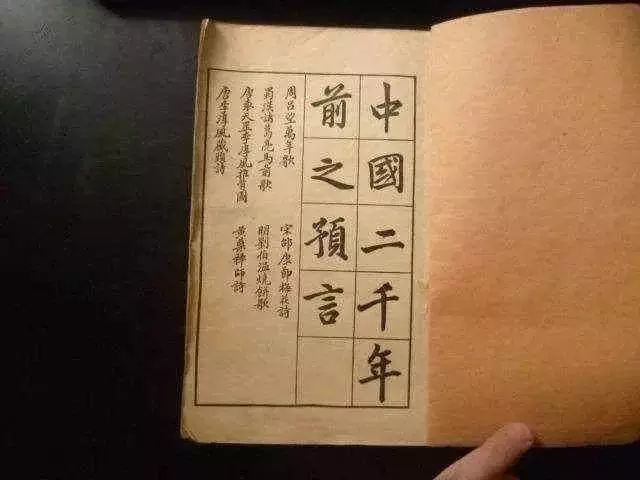 中國二千年
前之預言
周呂望萬年歌
宋邵康節梅花詩
蜀漢諸葛亮馬前歌
明劉伯温燒餅歌
唐袁天罡李淳風推背圖
黃蘗禪師詩
唐李淳風藏頭詩